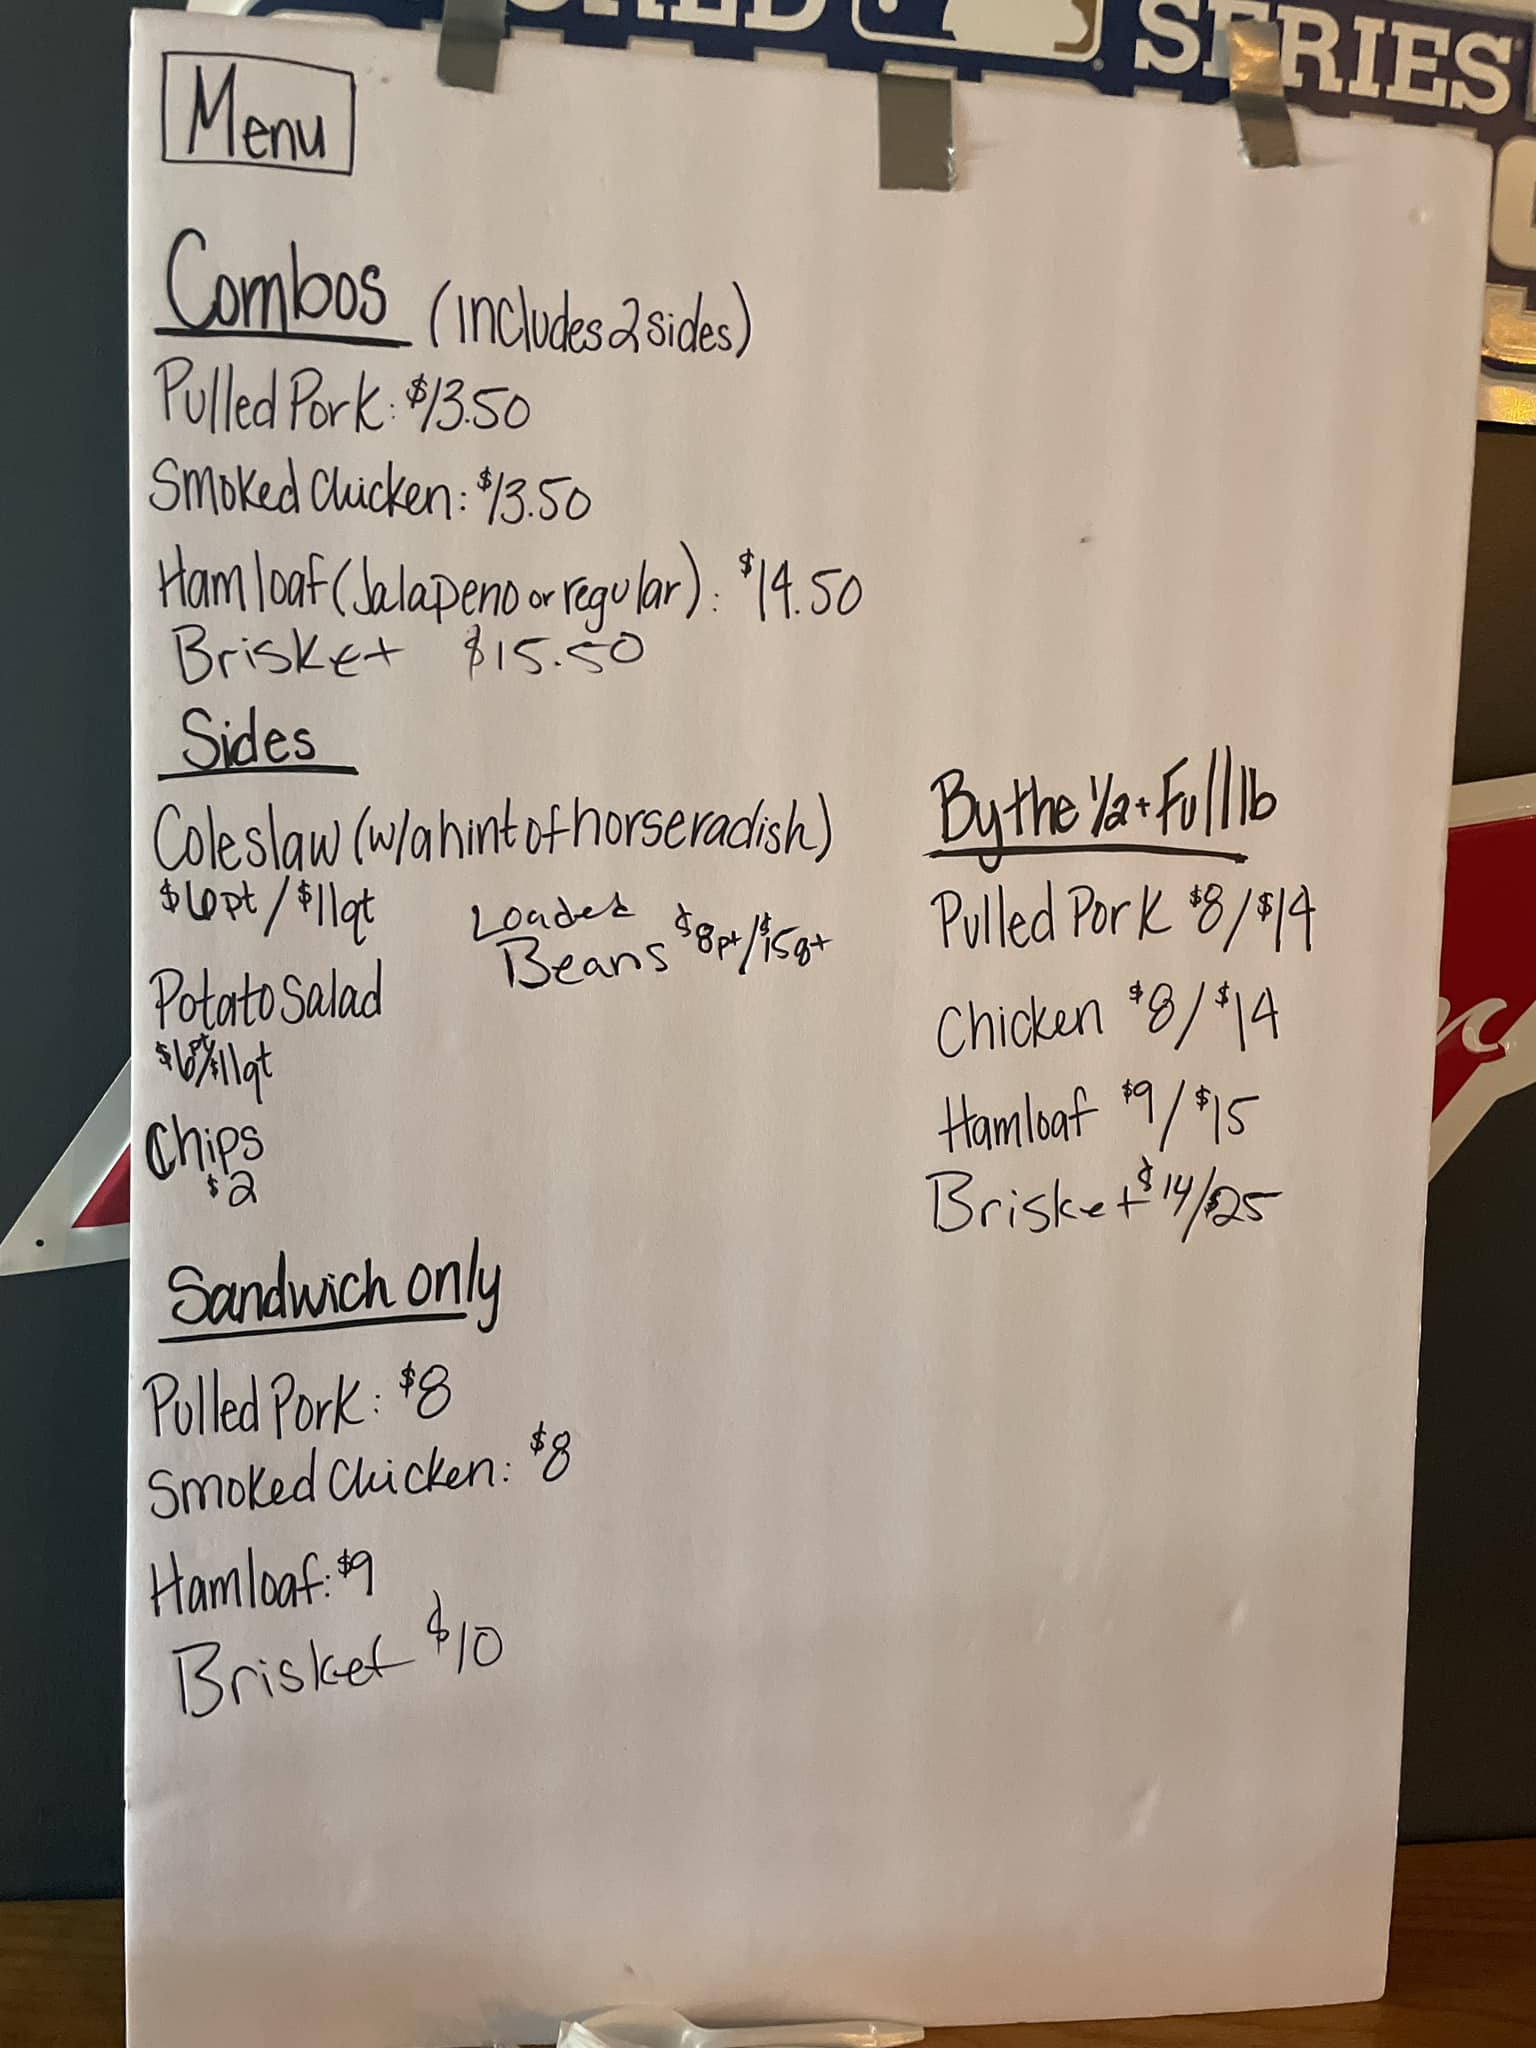 SERIES
Menu
Combos (includes 2 sides)
Pulled Pork: $13.50
Smoked Chicken: $13.50
Ham loaf (Jalapeno or regular): $14.50
Brisket $15.50
Sides
Coleslaw (w/ a hint of horseradish)
$6pt / $11qt
Loaded
Beans $8pt/$15qt
Potato Salad
$6pt/$11qt
Chips
$2
By the 1/2 + Full lb
Pulled Pork $8/$14
Chicken $8/$14
Hamloaf $9/$15
Brisket $14/$25
Sandwich only
Pulled Pork: $8
Smoked Chicken: $8
Ham loaf: $9
Brisket $10